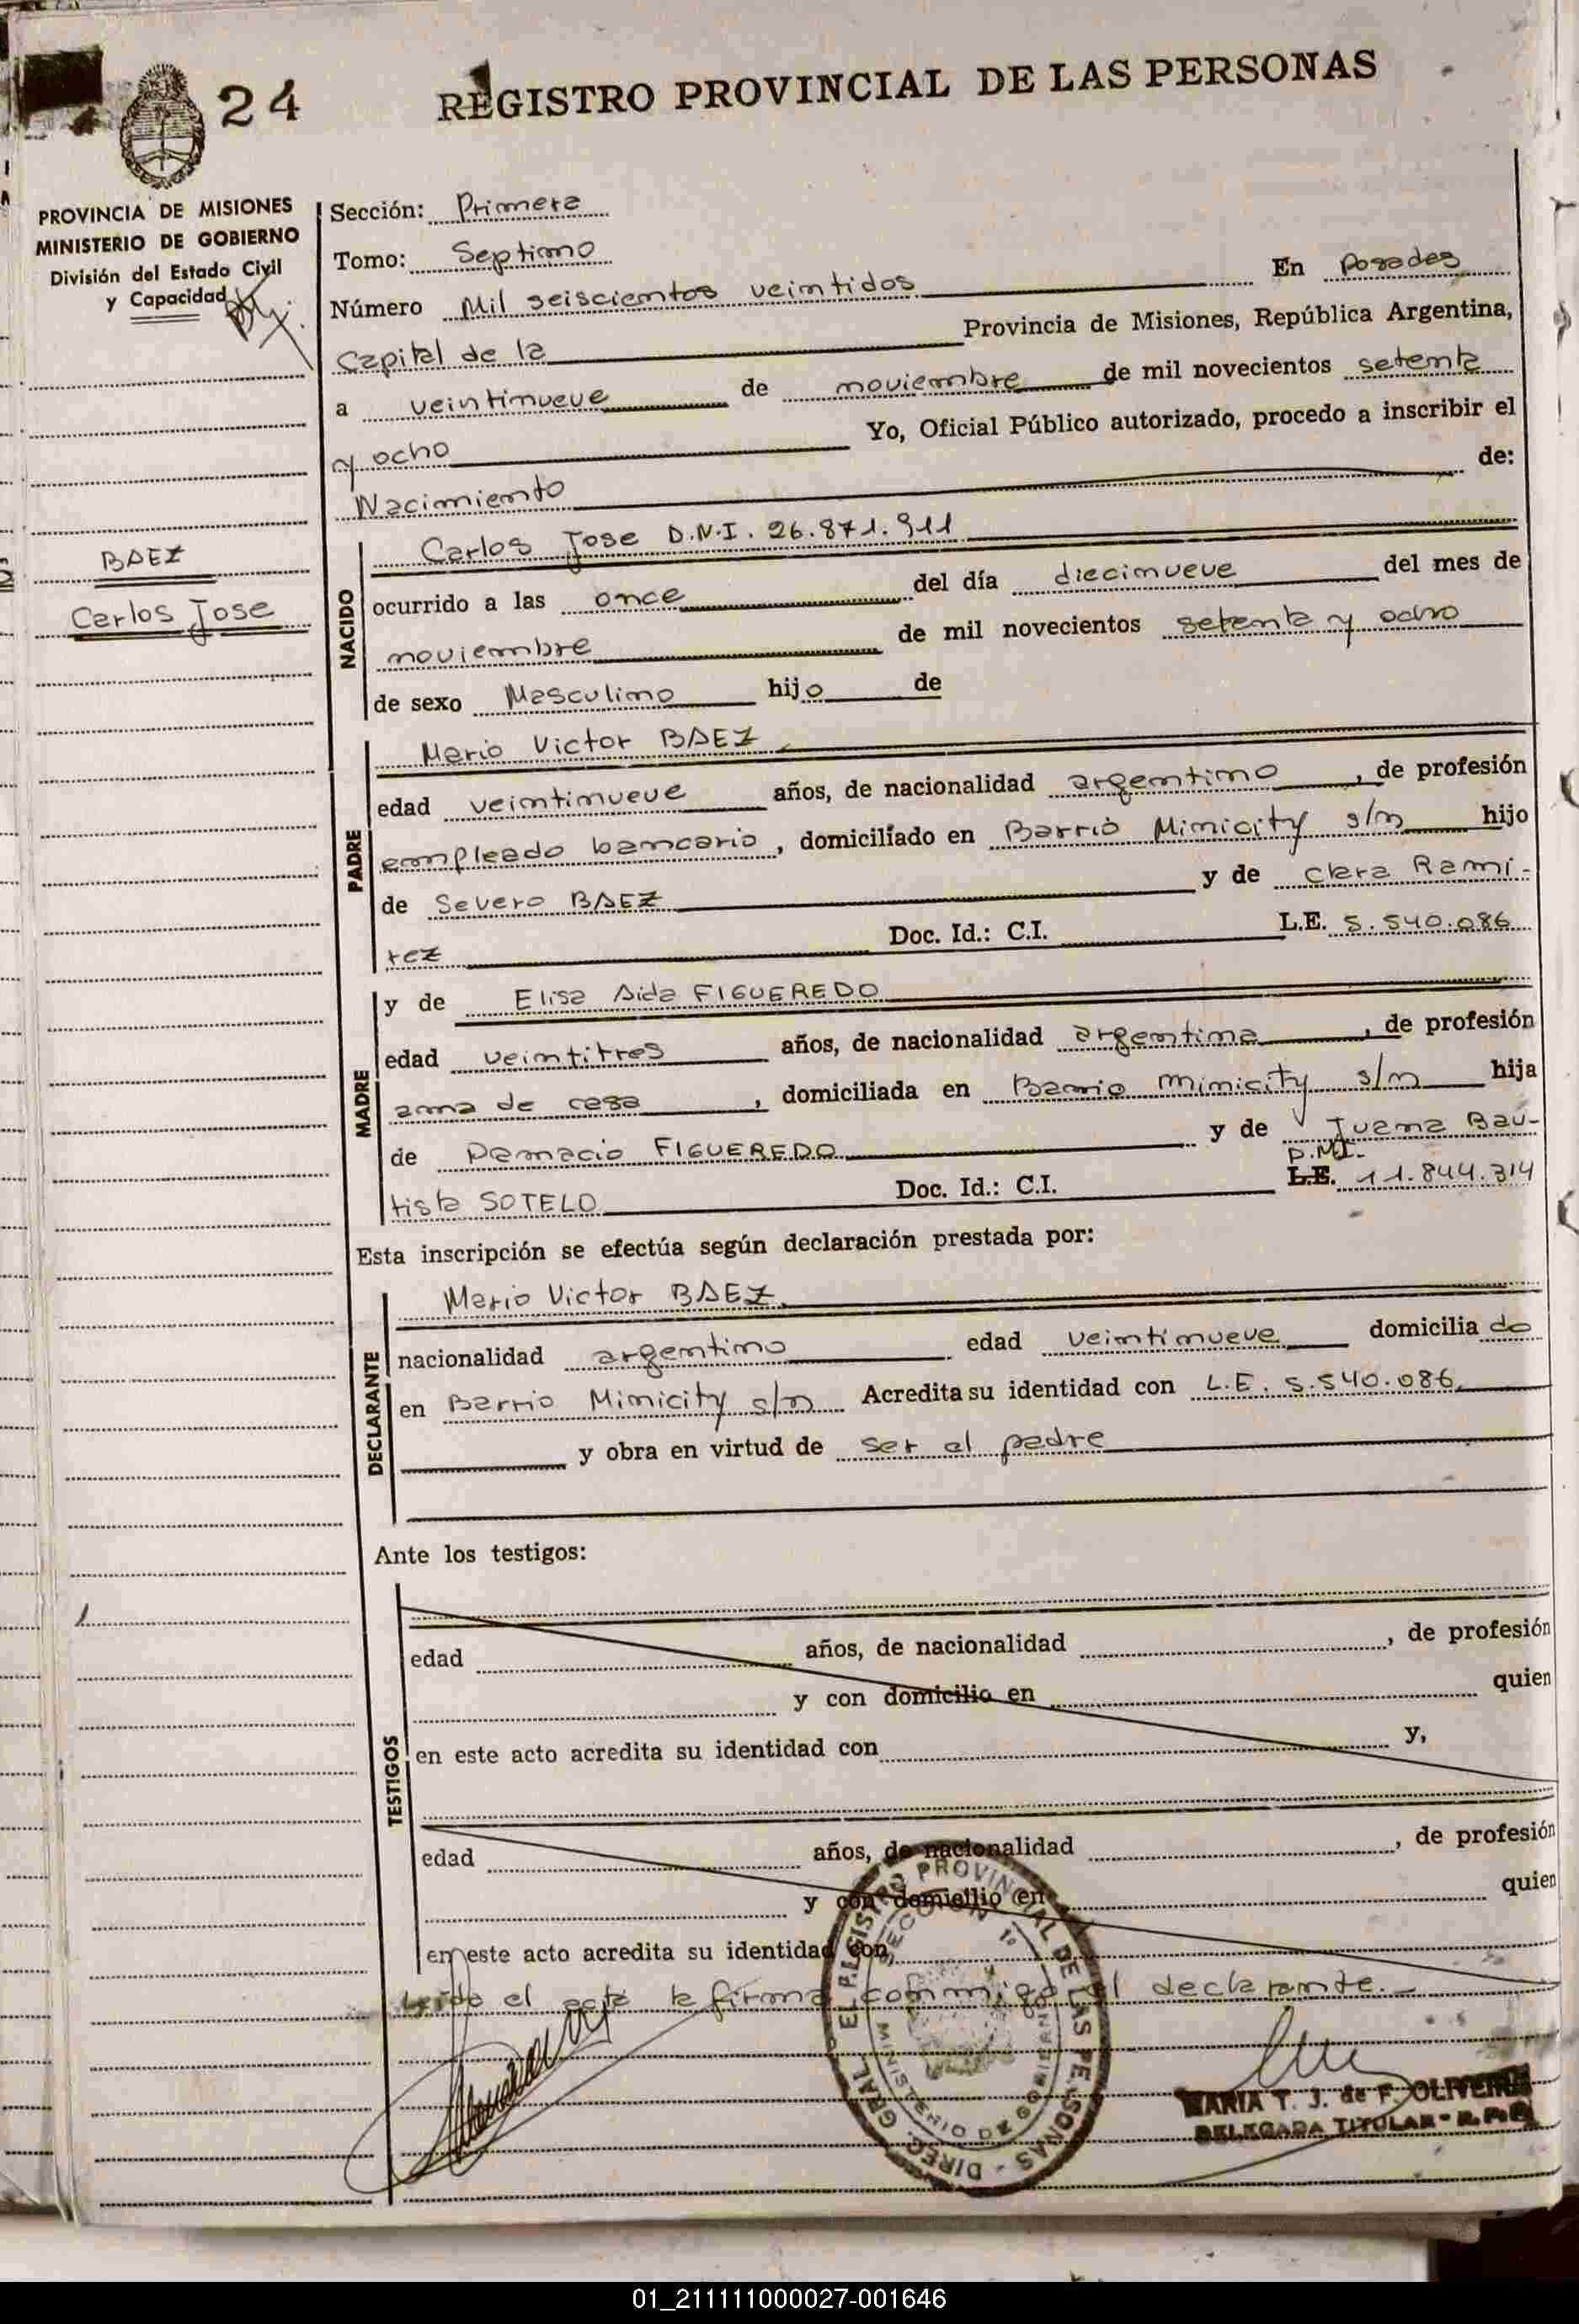 24
REGISTRO PROVINCIAL DE LAS PERSONAS
PROVINCIA DE MISIONES
MINISTERIO DE GOBIERNO
División del Estado Civil
y Capacidad
BAEZ
Carlos Jose
Sección: Primera
Tomo: Septimo
Número Mil seiscientos veintidos En Posadas
Capital de la Provincia de Misiones, República Argentina,
a veintinueve de noviembre de mil novecientos setenta
y ocho Yo, Oficial Público autorizado, procedo a inscribir el
Nacimiento de:
NACIDO
Carlos Jose D.N.I. 26.871.911
ocurrido a las once del día diecinueve del mes de
noviembre de mil novecientos setenta y ocho
de sexo Masculino hijo de
PADRE
Mario Victor BAEZ
edad veintinueve años, de nacionalidad argentino, de profesión
empleado bancario, domiciliado en Barrio Minicity s/n hijo
de Severo BAEZ y de Clara Rami-
rez Doc. Id.: C.I. L.E. 5.540.086
MADRE
y de Elisa Aida FIGUEREDO
edad veintitres años, de nacionalidad argentina, de profesión
ama de casa, domiciliada en Barrio Minicity s/n hija
de Damacio FIGUEREDO y de Juana Bau-
tista SOTELO Doc. Id.: C.I. L.E. D.N.I. 11.844.314
Esta inscripción se efectúa según declaración prestada por:
DECLARANTE
Mario Victor BAEZ
nacionalidad argentino edad veintinueve domiciliado
en Barrio Minicity s/n Acredita su identidad con L.E. 5.540.086
y obra en virtud de ser el padre
Ante los testigos:
TESTIGOS
edad años, de nacionalidad , de profesión
y con domicilio en quien
en este acto acredita su identidad con y,
edad años, de nacionalidad , de profesión
y con domicilio en quien
en este acto acredita su identidad con
Leida el acta la firma conmigo el declarante.-
REGISTRO PROVINCIAL DE LAS PERSONAS - DIREC. GRAL. DEL
SECCION 1º
MINISTERIO DE GOBIERNO
MARIA T. J. de F. OLIVEIRA
DELEGADA TITULAR - R.P.P.
01_211111000027-001646